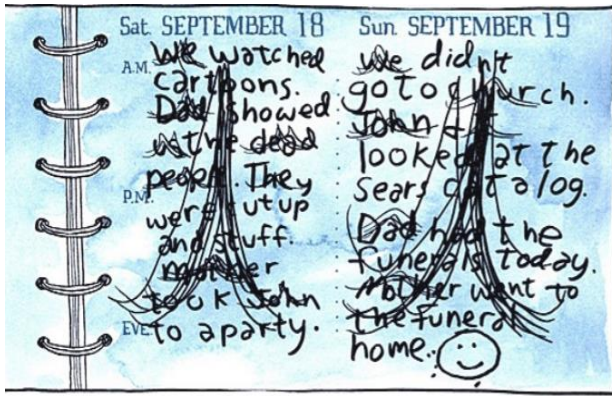 Sat. SEPTEMBER 18
A.M. We watched
cartoons.
Dad showed
us the dead
people. They
P.M. were cut up
and stuff.
mother
took John
EVE. to a party.
Sun. SEPTEMBER 19
We didn't
go to church.
John
looked at the
Sears catalog.
Dad had the
funerals today.
Mother went to
the funeral
home.